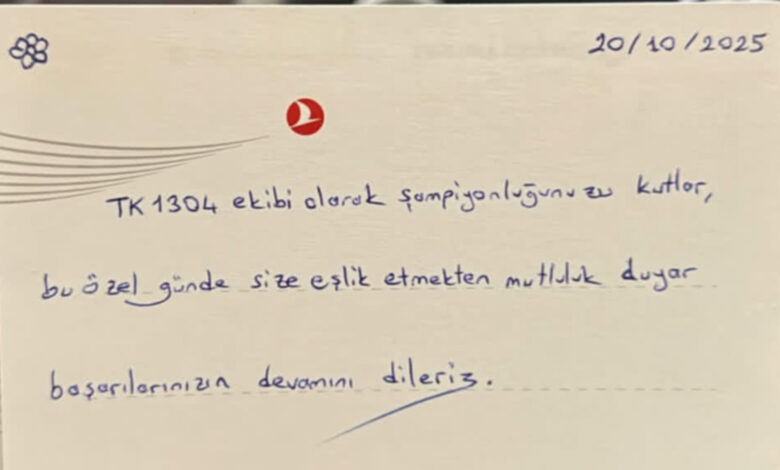 20/10/2025
TK 1304 ekibi olarak şampiyonluğunuzu kutlar,
bu özel günde size eşlik etmekten mutluluk duyar
başarılarınızın devamını dileriz.